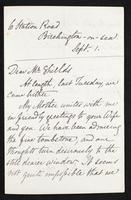 6 Station Road
Birchington-on-sea
Sept. 1.
Dear Mr. Shields
At length, last Tuesday, we
came hither.
My Mother unites with me
in friendly greetings to your Wife
and you. We have been admiring
the fine tombstone, and our
thoughts turn desirously to the
still dearer window. It seems
not quite impossible that we